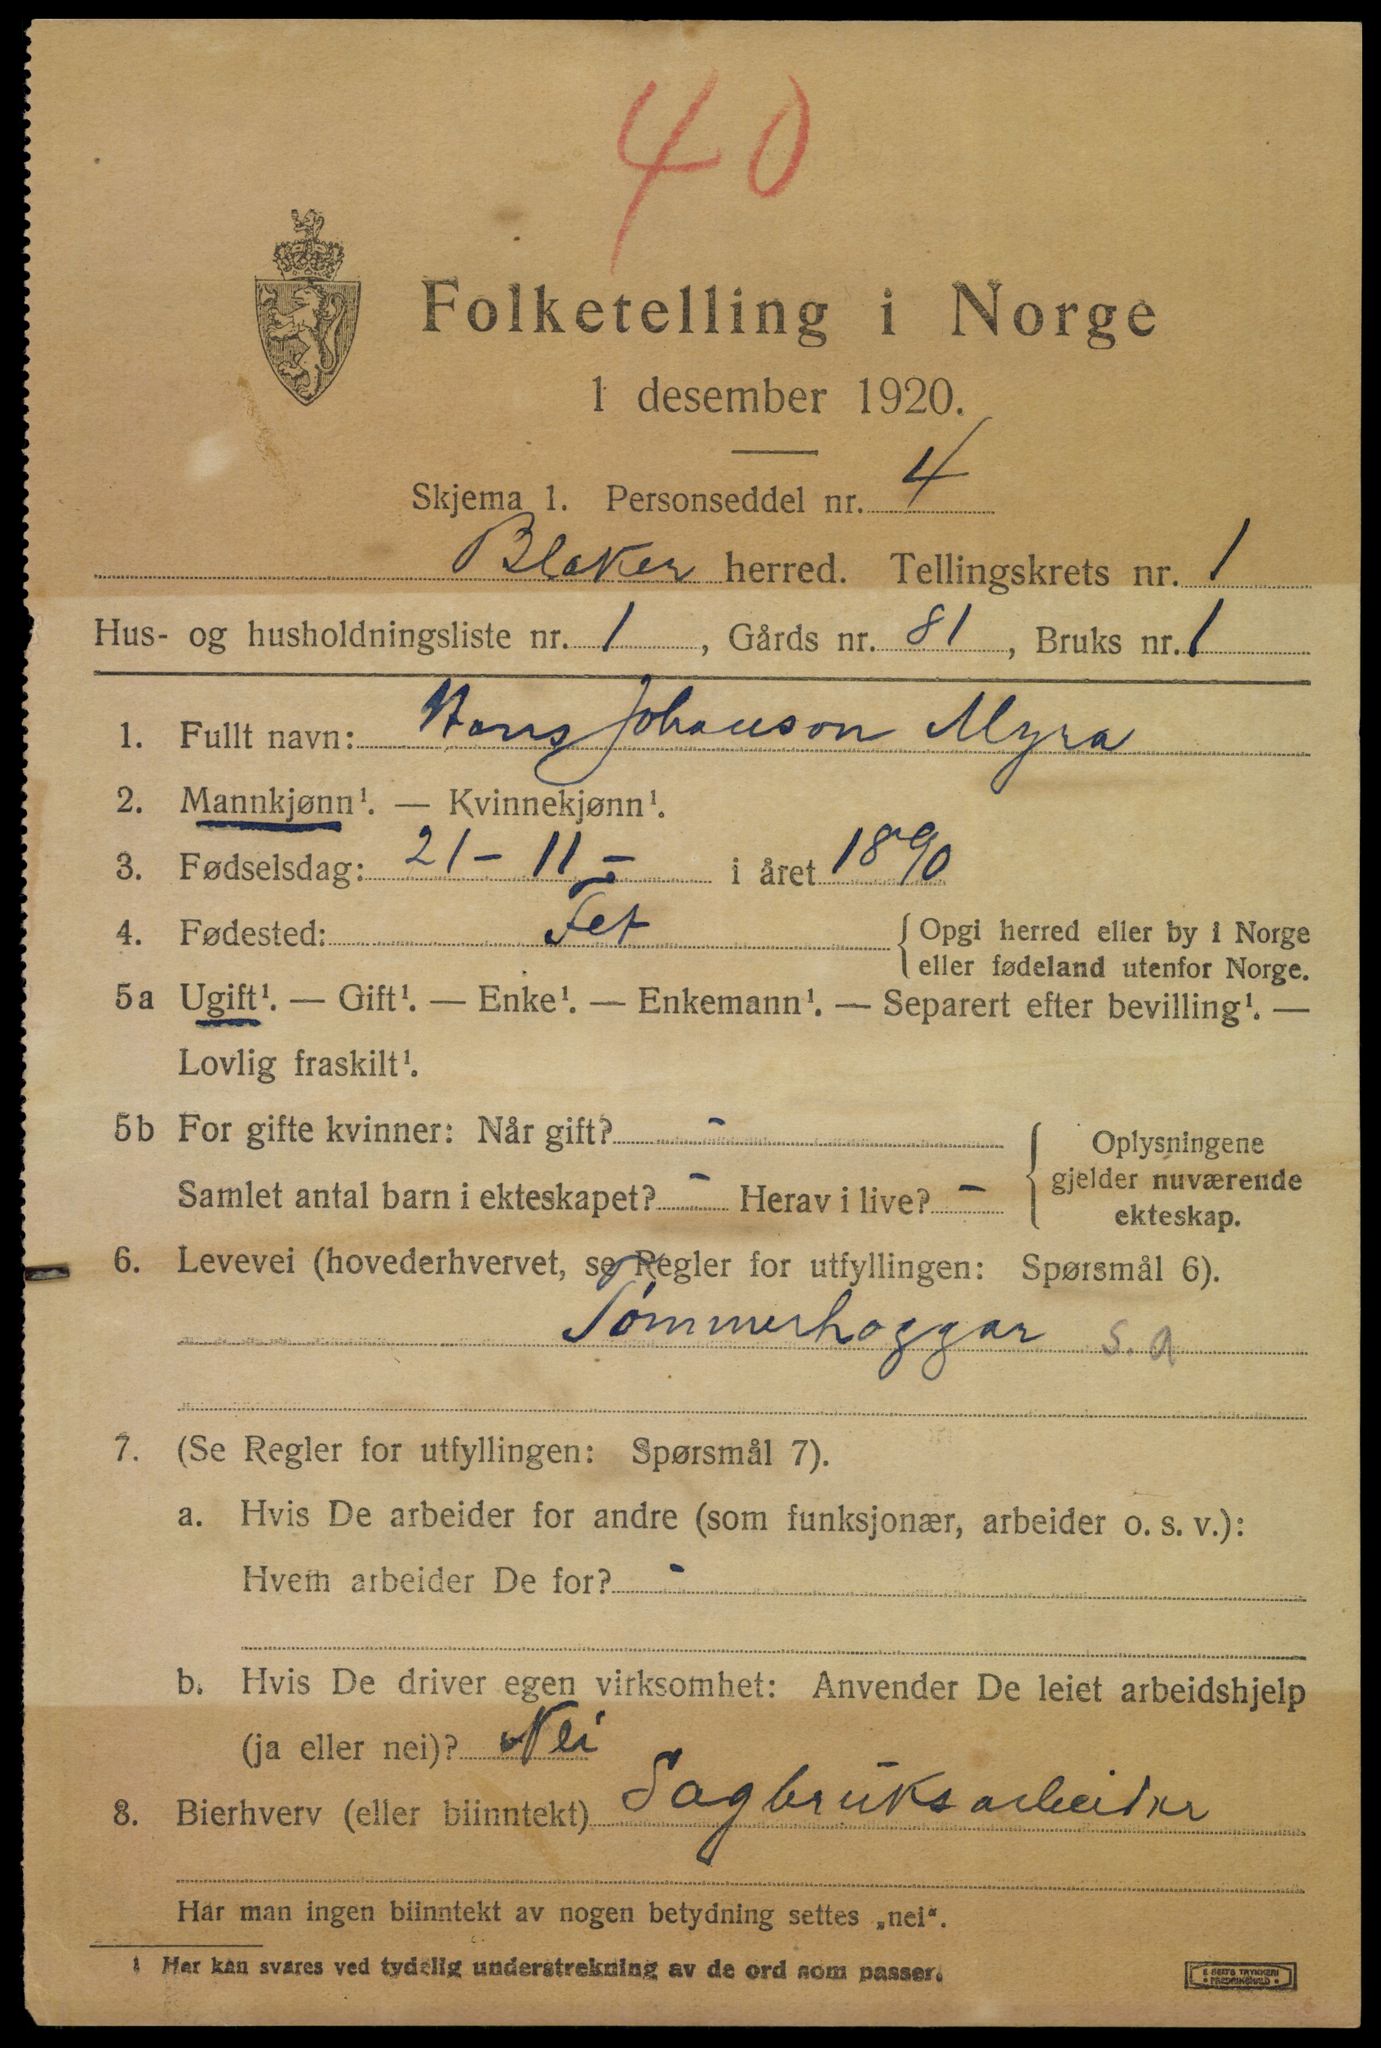 40
Folketelling i Norge
1 desember 1920.
Skjema 1. Personseddel nr. 4
Blaker herred. Tellingskrets nr. 1
Hus- og husholdningsliste nr. 1, Gårds nr. 81, Bruks nr. 1
1. Fullt navn: Hans Johanson Myra
2. Mannkjønn¹. — Kvinnekjønn¹.
3. Fødselsdag: 21 - 11 - i året 1890
4. Fødested: Fet { Opgi herred eller by i Norge
eller fødeland utenfor Norge.
5a Ugift¹. — Gift¹. — Enke¹. — Enkemann¹. — Separert efter bevilling¹. —
Lovlig fraskilt¹.
5b For gifte kvinner: Når gift? -
Samlet antal barn i ekteskapet? - Herav i live? -
{ Oplysningene
gjelder nuværende
ekteskap.
6. Levevei (hovederhvervet, se Regler for utfyllingen: Spørsmål 6).
Tømmerhoggar s.a
7. (Se Regler for utfyllingen: Spørsmål 7).
a. Hvis De arbeider for andre (som funksjonær, arbeider o. s. v.):
Hvem arbeider De for? -
b. Hvis De driver egen virksomhet: Anvender De leiet arbeidshjelp
(ja eller nei)? Nei
8. Bierhverv (eller biinntekt) Sagbruksarbeider
Har man ingen biinntekt av nogen betydning settes „nei".
1 Her kan svares ved tydelig understrekning av de ord som passer.